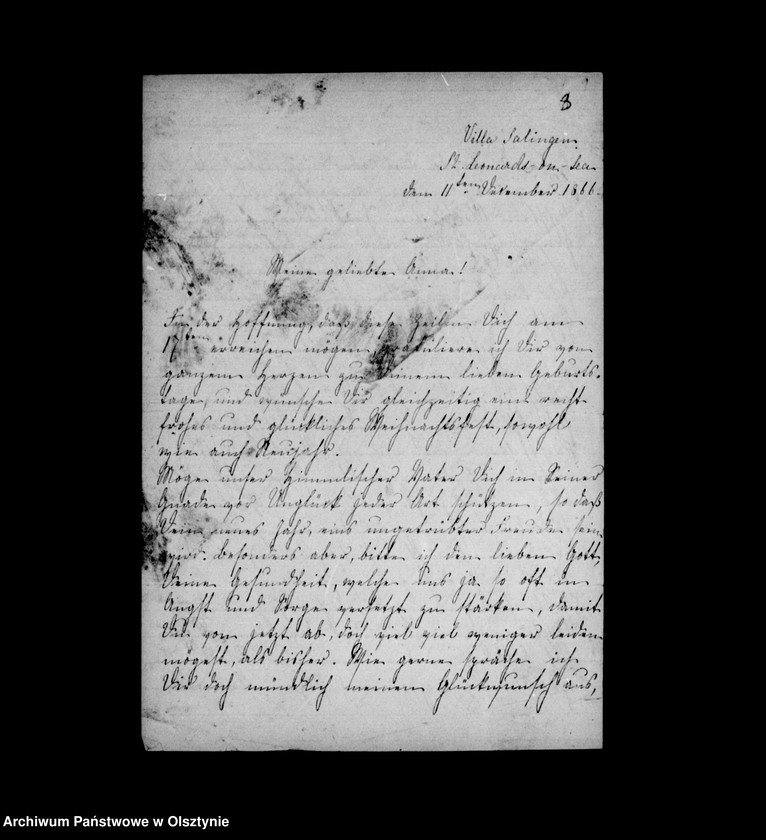 8
Villa Salingen
St. Leonards-on-Sea
den 11ten Dezember 1866.
Meine geliebte Anna!
In der Hoffnung, daß diese Zeilen Dich am
17ten erreichen mögen gratuliere ich Dir von
ganzem Herzen zu Deinem lieben Geburts-
tage, und wünsche Dir gleichzeitig ein recht
frohes und glückliches Weihnachtsfest, sowohl
wie auch Neujahr.
Möge unser himmlischer Vater Dich in Seiner
Gnade vor Unglück jeder Art schützen, so daß
Dein neues Jahr, eins ungetrübter Freude sein
wird. Besonders aber, bitte ich den lieben Gott,
Deine Gesundheit, welche uns ja so oft in
Angst und Sorge versetzt zu stärken, damit
Du von jetzt ab, doch viel viel weniger leiden
mögest, als bisher. Wie gerne spräche ich
Dir doch mündlich meinen Glückwunsch aus,
Archiwum Państwowe w Olsztynie